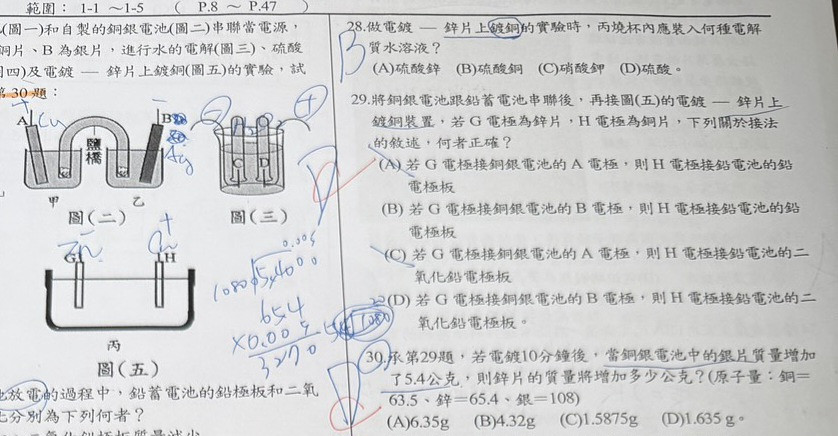 範圍： 1-1 ～1-5 （ P.8 ～ P.47 ）
(圖一)和自製的銅銀電池(圖二)串聯當電源，
銅片、B 為銀片，進行水的電解(圖三)、硫酸
四)及電鍍 — 鋅片上鍍銅(圖五)的實驗，試
第 30 題：
+
A Cu
鹽橋
−
B
Ag
甲
乙
圖(二)
−
+
C D
圖(三)
−
Zn
G
+
Cu
H
丙
圖(五)
0.005
1080 5.4000
65.4
×0.005
3270
放電的過程中，鉛蓄電池的鉛極板和二氧
分別為下列何者？
B
28.做電鍍 — 鋅片上鍍銅的實驗時，丙燒杯內應裝入何種電解
質水溶液？
(A)硫酸鋅 (B)硫酸銅 (C)硝酸鉀 (D)硫酸。
D
29.將銅銀電池跟鉛蓄電池串聯後，再接圖(五)的電鍍 — 鋅片上
鍍銅裝置，若 G 電極為鋅片，H 電極為銅片，下列關於接法
的敘述，何者正確？
(A) 若 G 電極接銅銀電池的 A 電極，則 H 電極接鉛電池的鉛
電極板
(B) 若 G 電極接銅銀電池的 B 電極，則 H 電極接鉛電池的鉛
電極板
(C) 若 G 電極接銅銀電池的 A 電極，則 H 電極接鉛電池的二
氧化鉛電極板
(D) 若 G 電極接銅銀電池的 B 電極，則 H 電極接鉛電池的二
氧化鉛電極板。
D
30.承第29題，若電鍍10分鐘後，當銅銀電池中的銀片質量增加
了5.4公克，則鋅片的質量將增加多少公克？(原子量：銅=
63.5、鋅=65.4、銀=108)
(A)6.35g (B)4.32g (C)1.5875g (D)1.635 g。